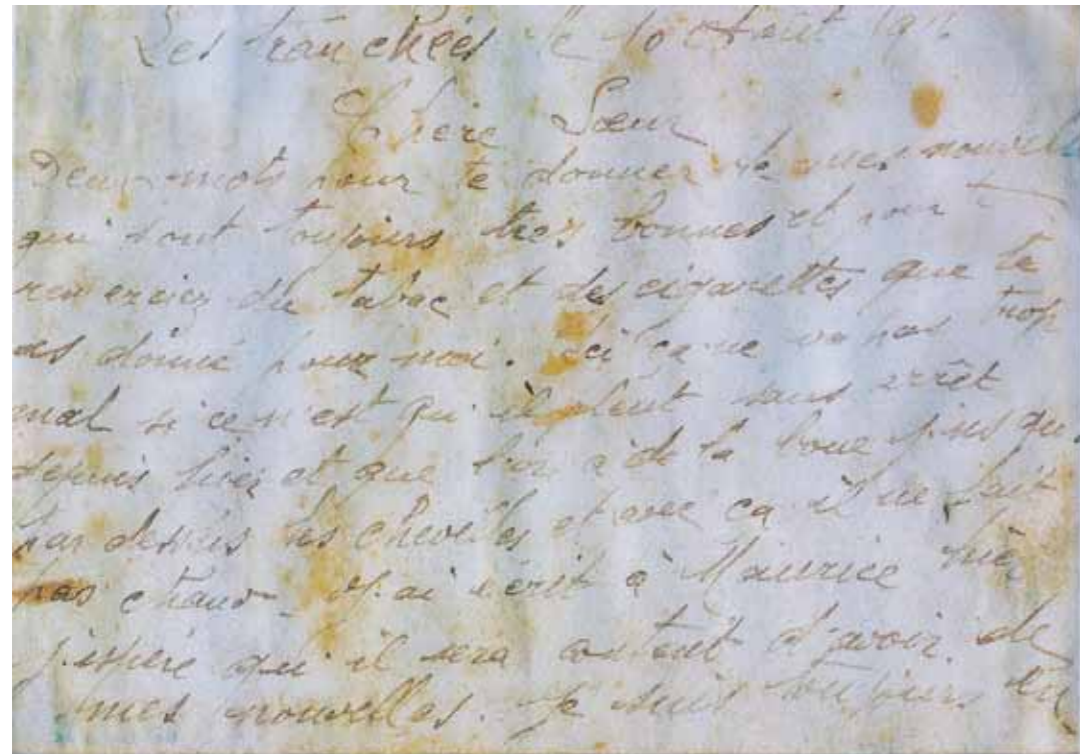 Les tranchées le 10 Août 191
Chère Sœur
Deux mots pour te donner de mes nouvelles
qui sont toujours très bonnes et pour te
remercier du tabac et des cigarettes que tu
as donné pour moi. Ici ça ne va pas trop
mal si ce n'est qu'il pleut sans arrêt
depuis hier et que l'on a de la boue jusqu'au
par dessus les chevilles et avec ça il ne fait
pas chaud. J'ai écrit à Maurice hier
j'espère qu'il sera content d'avoir de
mes nouvelles. Je suis toujours en